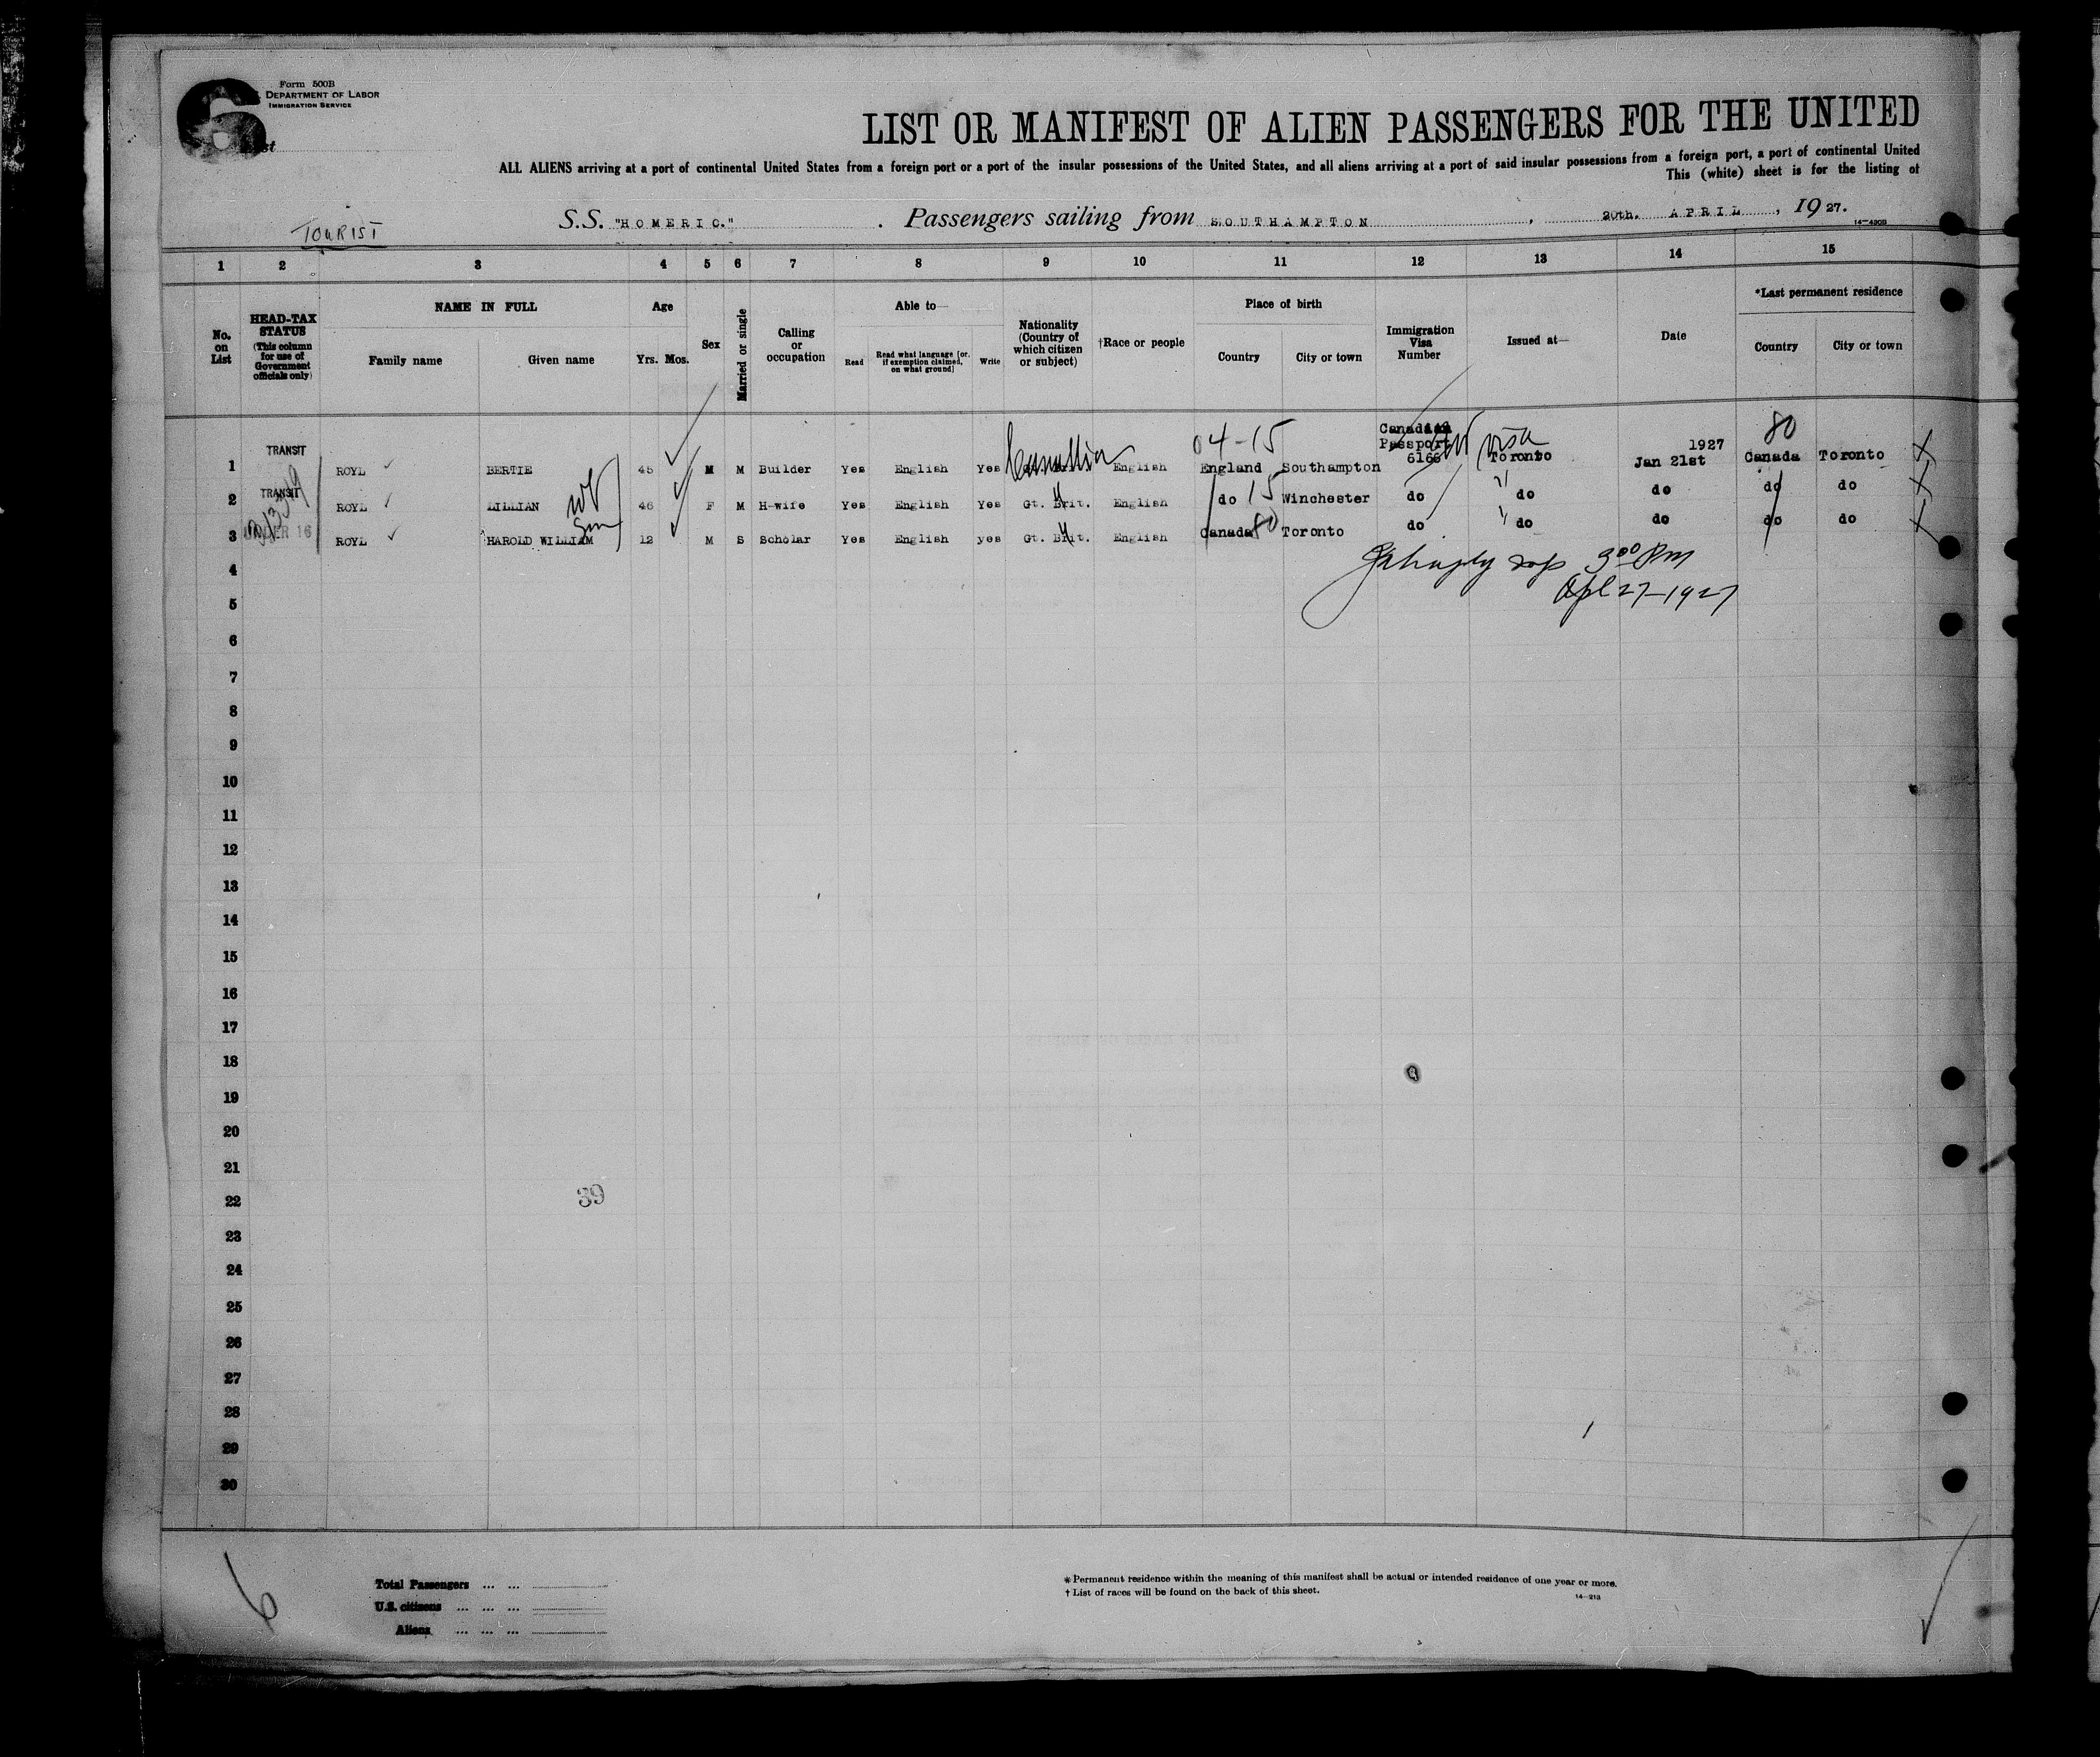 6
Form 500B
DEPARTMENT OF LABOR
IMMIGRATION SERVICE
LIST OR MANIFEST OF ALIEN PASSENGERS FOR THE UNITED
ALL ALIENS arriving at a port of continental United States from a foreign port or a port of the insular possessions of the United States, and all aliens arriving at a port of said insular possessions from a foreign port, a port of continental United
This (white) sheet is for the listing of
TOURIST
S.S. "HOMERIC." Passengers sailing from SOUTHAMPTON, 20th. APRIL, 1927.
1 2 3 4 5 6 7 8 9 10 11 12 13 14 15
No. on List
HEAD-TAX STATUS (This column for use of Government officials only)
NAME IN FULL
Family name Given name
Age
Yrs. Mos.
Sex
Married or single
Calling or occupation
Able to—
Read
Read what language [or, if exemption claimed, on what ground]
Write
Nationality (Country of which citizen or subject)
†Race or people
Place of birth
Country City or town
Immigration Visa Number
Issued at—
Date
*Last permanent residence
Country City or town
04-15 Canadian Passport visa 1927 80
1 TRANSIT ROYL BERTIE 45 M M Builder Yes English Yes Canadian English England Southampton 6166 Toronto Jan 21st Canada Toronto
2 TRANSIT ROYL LILLIAN wf 46 F M H-wife Yes English Yes Gt. Brit. English do 15 Winchester do " do do do do
3 UNDER 16 ROYL HAROLD WILLIAM son 12 M S Scholar Yes English yes Gt. Brit. English Canada 80 Toronto do " do do do do
4 3 00 PM
Apl 27-1927
5
6
7
8
9
10
11
12
13
14
15
16
17
18
19
20
21
22 39
23
24
25
26
27
28
29
30
6
Total Passengers ... ...
U.S. citizens ... ... ...
Aliens ... ... ...
* Permanent residence within the meaning of this manifest shall be actual or intended residence of one year or more.
† List of races will be found on the back of this sheet.
14—213